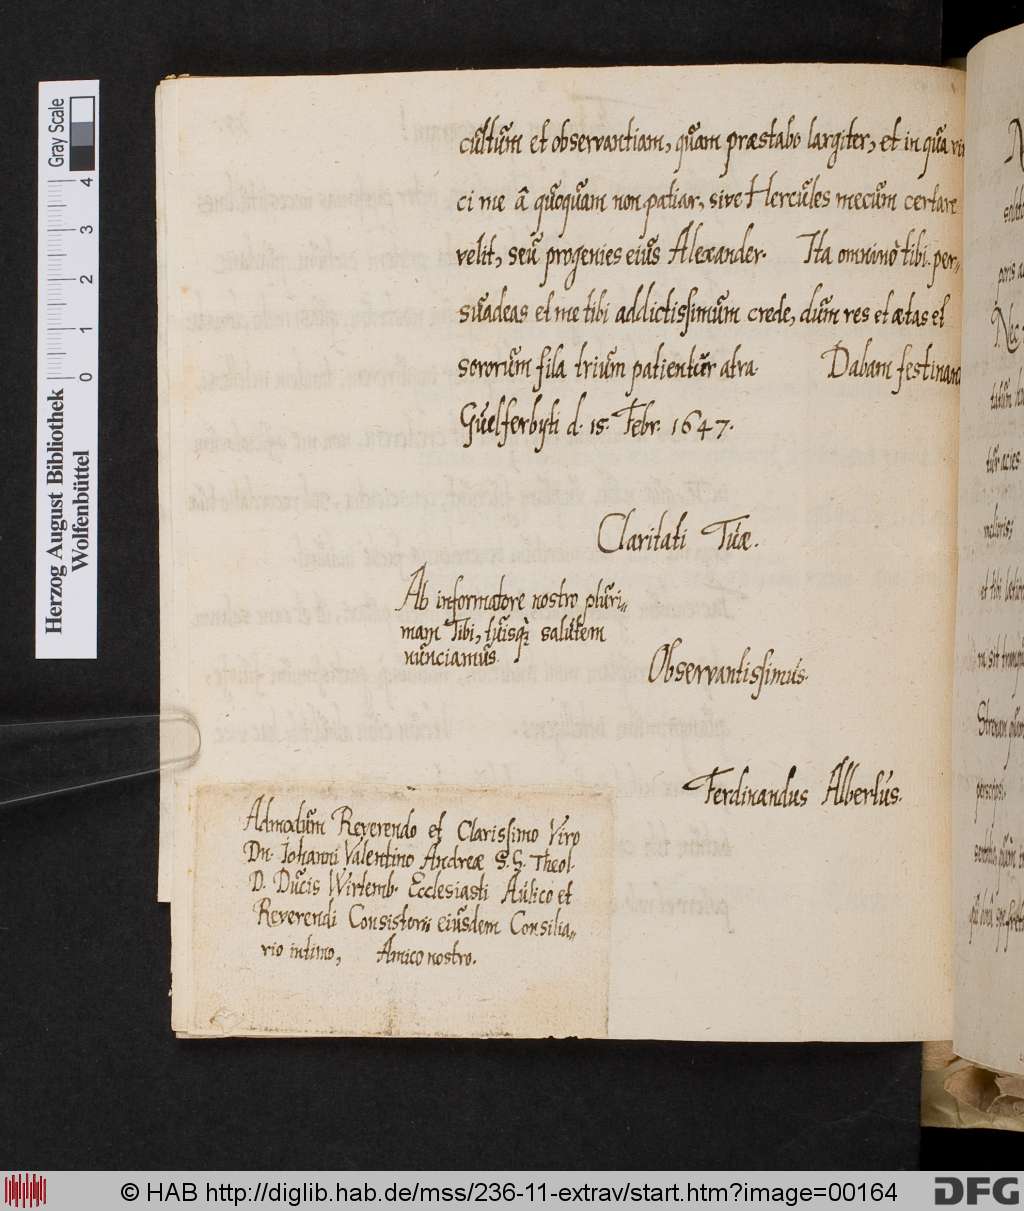 cultum et observantiam, quam præstabo largiter, et in qua vin
ci me â quoquam non patiar, sive Hercules mecum certare
velit, seu progenies eius Alexander. Ita omninò tibi per„
suadeas et me tibi addictissimum crede, dum res et ætas et
sororum fila trium patientur atra. Dabam festinan
Guelferbyti d. 15. Febr. 1647.
Claritati Tuæ.
Ab informatore nostro pluri„
mam Tibi, tuisq; salutem
nunciamus.
Observantissimus.
Ferdinandus Albertus.
Admodum Reverendo et Clarissimo Viro
Dn. Johanni Valentino Andreæ S. S. Theol.
D. Ducis Wirtemb. Ecclesiasti Aulico et
Reverendi Consistorii eiusdem Consilia„
rio intimo, Amico nostro.
Herzog August Bibliothek
Wolfenbüttel
0 1 2 3 4
Gray Scale
© HAB http://diglib.hab.de/mss/236-11-extrav/start.htm?image=00164
DFG